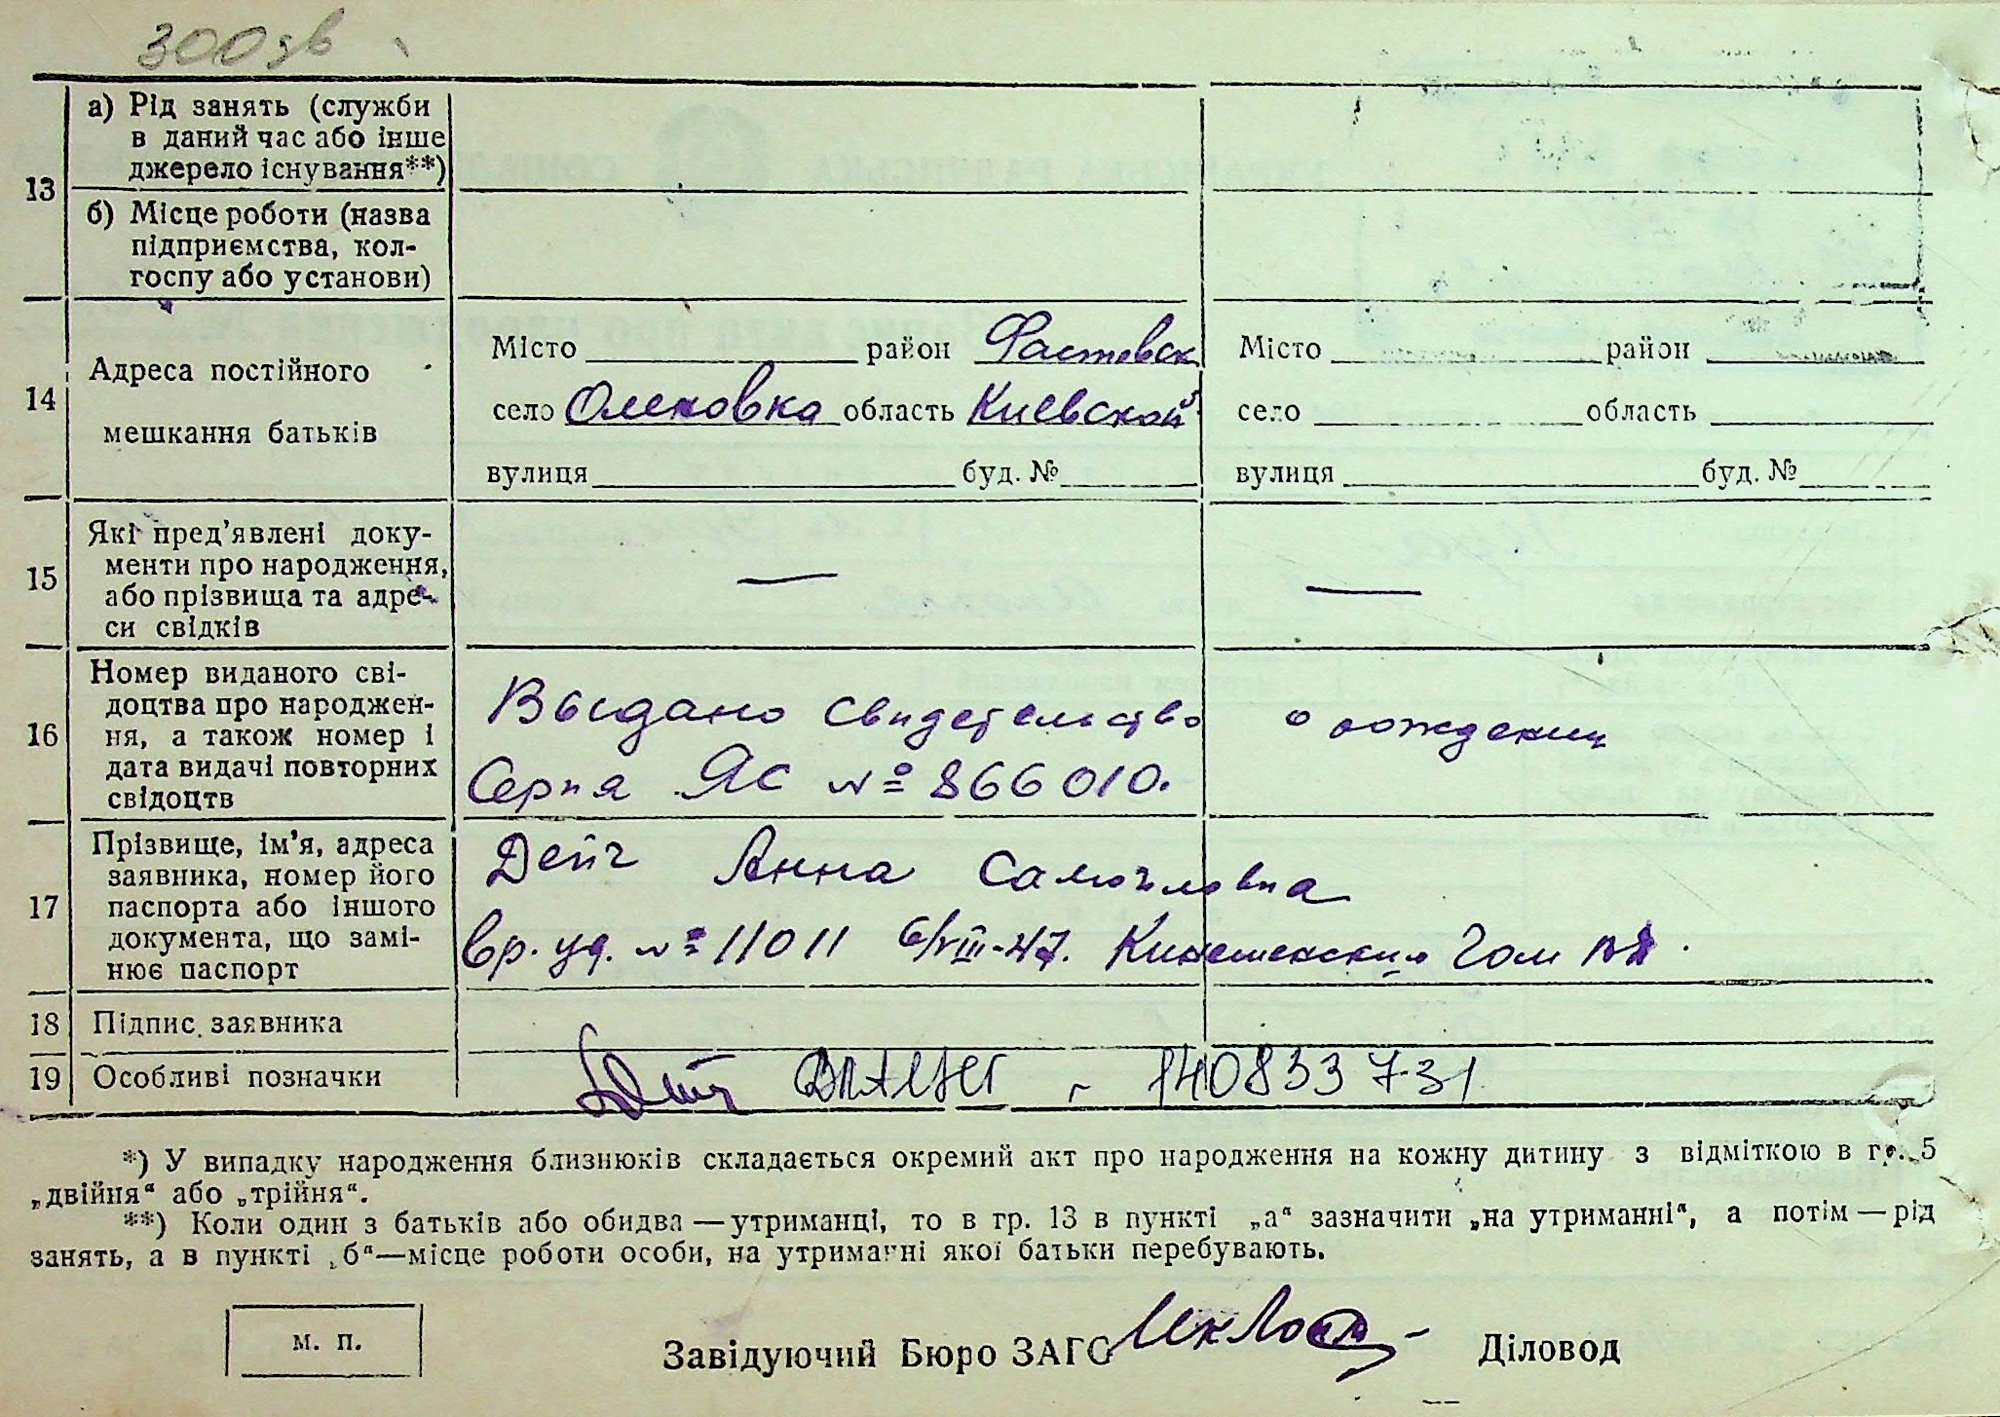 300
13
а) Рід занять (служби
в даний час або інше
джерело існування**)
б) Місце роботи (назва
підприємства, кол-
госпу або установи)
14
Адреса постійного
мешкання батьків
Місто район Фастовск
село Оленовка область Киевской
вулиця буд. №
Місто район
село область
вулиця буд. №
15
Які пред’явлені доку-
менти про народження,
або прізвища та адре-
си свідків
—
—
16
Номер виданого сві-
доцтва про народжен-
ня, а також номер і
дата видачі повторних
свідоцтв
Выдано свидетельство о рождении
Серия ЯС № 866010.
17
Прізвище, ім’я, адреса
заявника, номер його
паспорта або іншого
документа, що замі-
нює паспорт
Дейч Анна Самойловна
вр. уд. № 11011 6/VIII-47. Кинешемским Гом
18
Підпис заявника
19
Особливі позначки
Дейч 140833731
*) У випадку народження близнюків складається окремий акт про народження на кожну дитину з відміткою в гр. 5
„двійня“ або „трійня“.
**) Коли один з батьків або обидва — утриманці, то в гр. 13 в пункті „а“ зазначити „на утриманні“, а потім — рід
занять, а в пункті „б“—місце роботи особи, на утриманні якої батьки перебувають.
м. п.
Завідуючий Бюро ЗАГС
Діловод